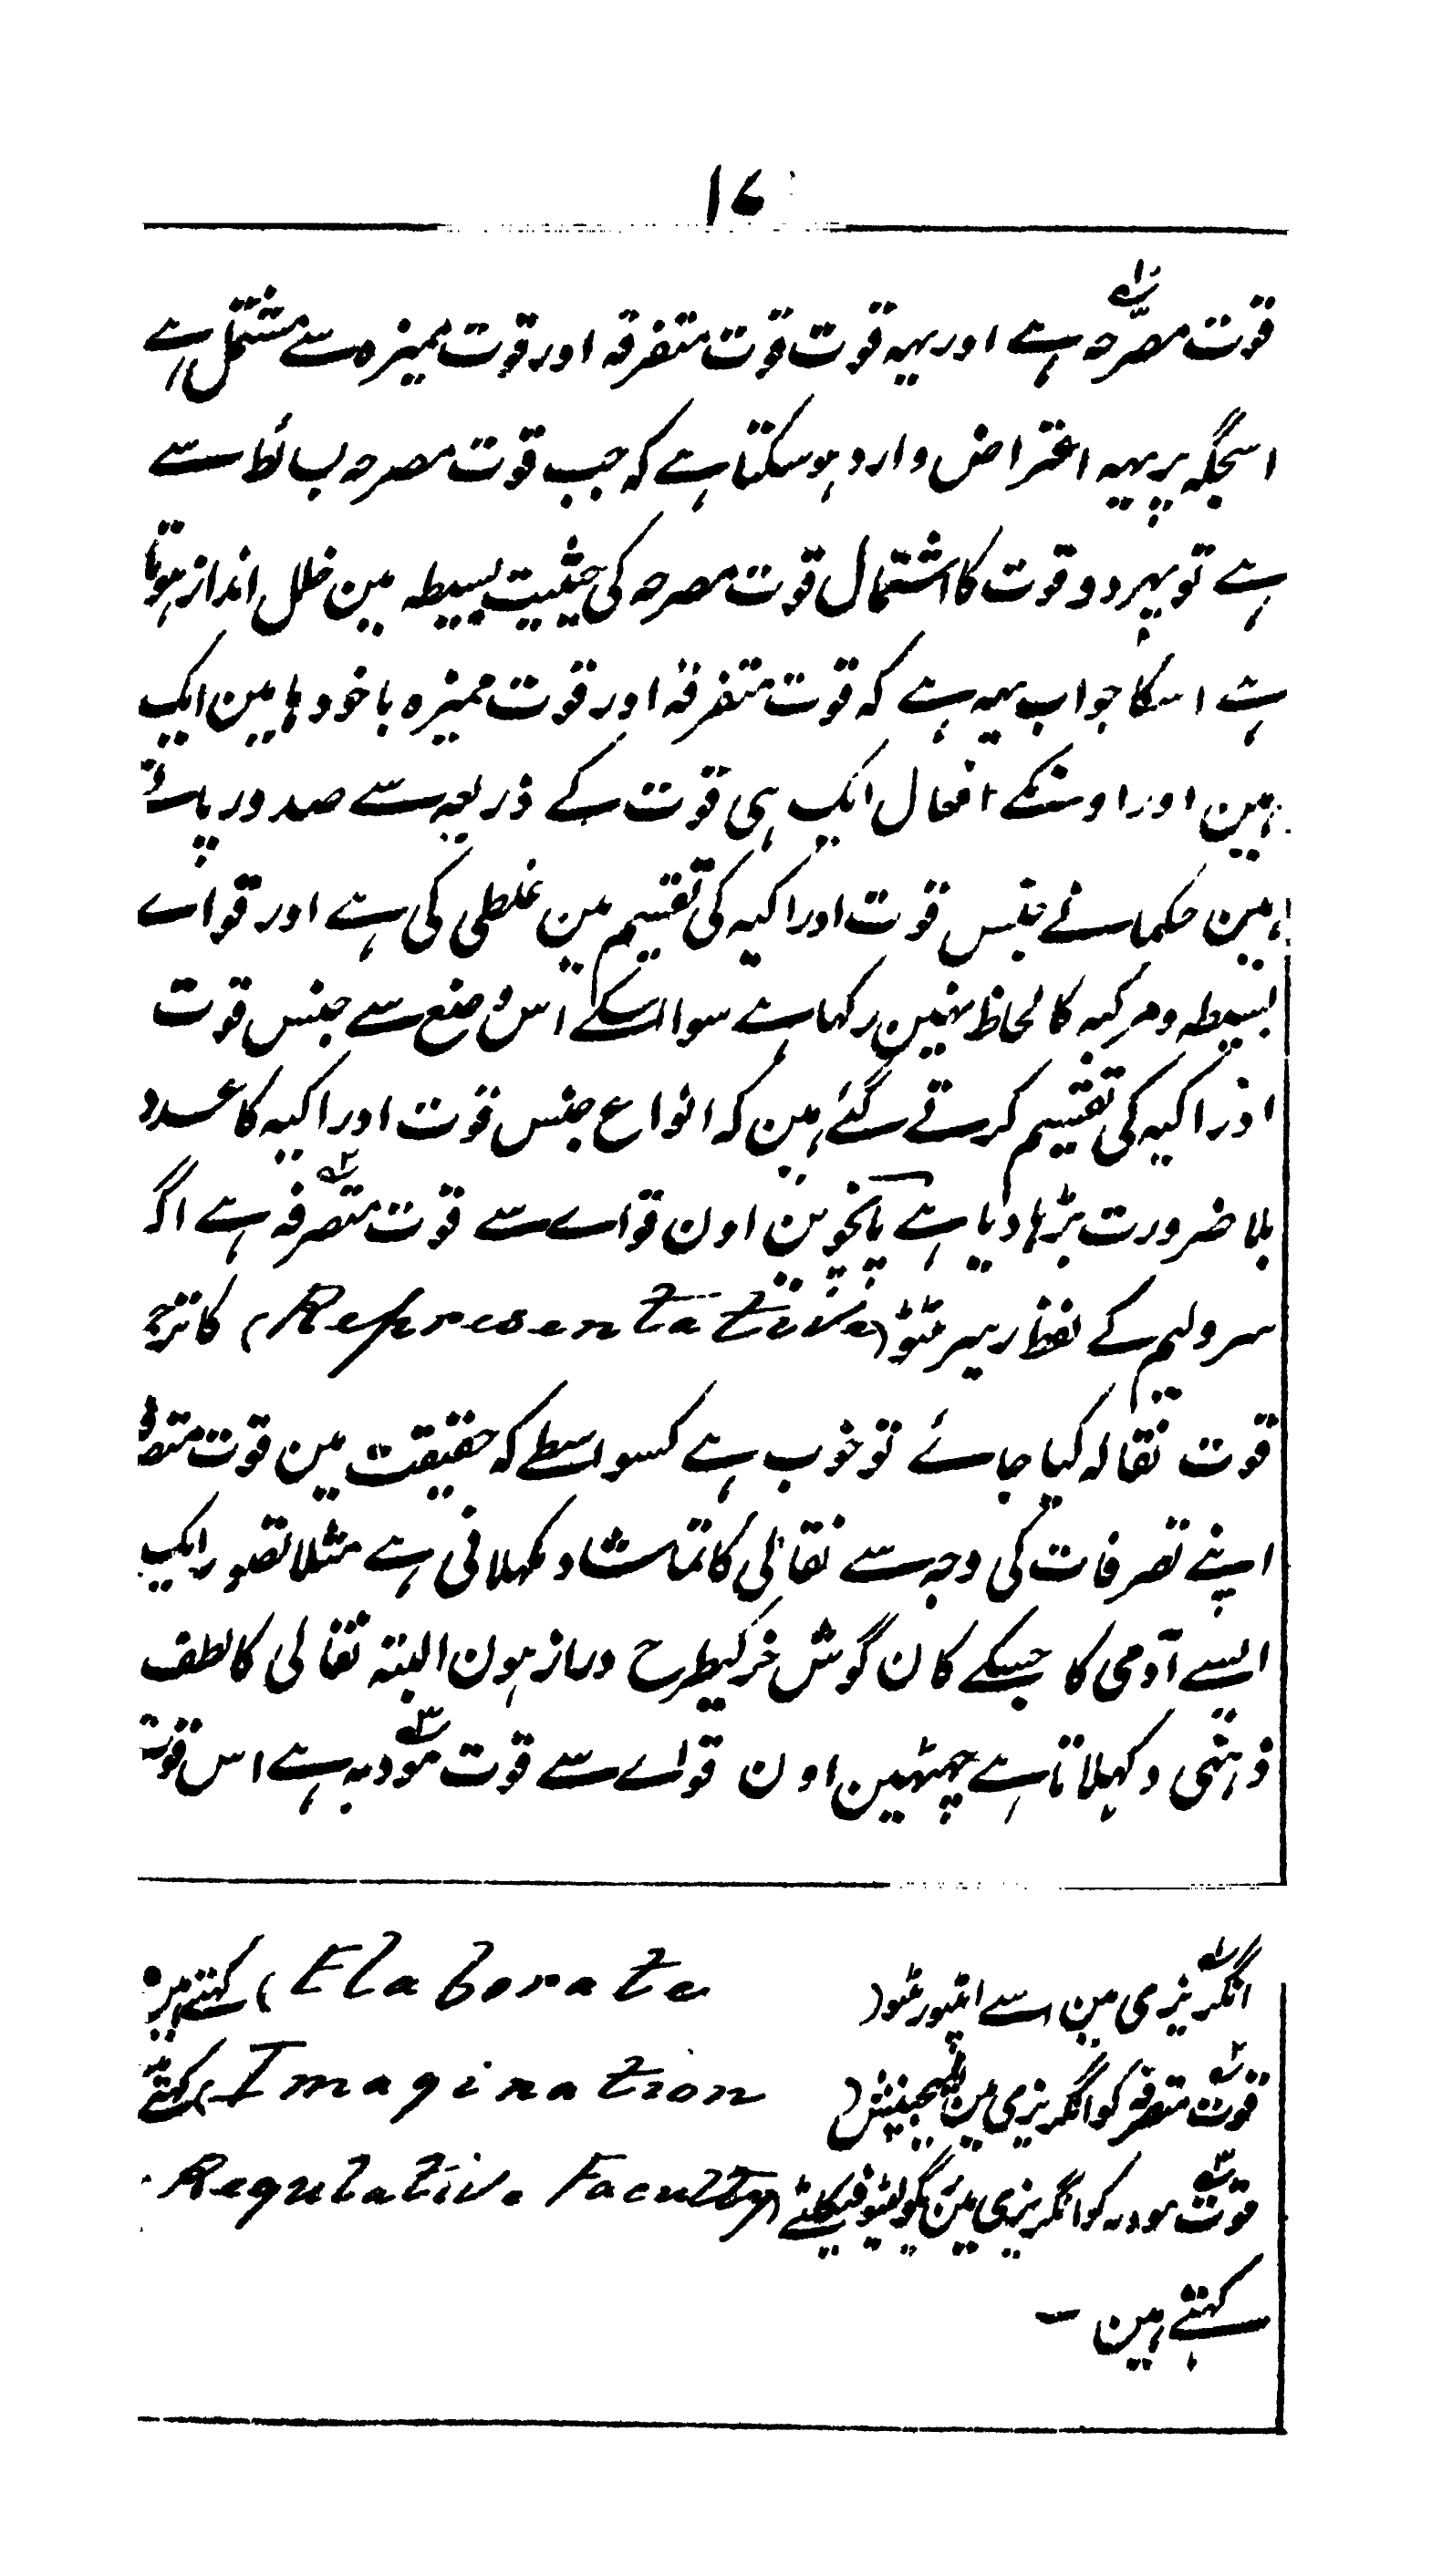 ۱۷
قوت مصرّحہ۱ ہے اور یہہ قوت قوت متفرقہ اور قوت ممیزہ سے مشتمل ہے
اسجگہ پر یہہ اعتراض وارد ہوسکتا ہے کہ جب قوت مصرحہ بسائط سے
ہے تو پہر دو قوت کا اشتمال قوت مصرحہ کی حیثیت بسیطہ مین خلل انداز ہوتا
ہے اسکا جواب یہہ ہے کہ قوت متفرقہ اور قوت ممیزہ باخودہا مین ایک
ہین اور اونکے افعال ایک ہی قوت کے ذریعہ سے صدور پاتے
ہین حکما نے جنس قوت ادراکیہ کی تقسیم مین غلطی کی ہے اور قواے
بسیطہ و مرکبہ کا لحاظ نہین رکہا ہے سوا اسکے اس وضع سے جنس قوت
ادراکیہ کی تقسیم کرتے گئے ہین کہ انواع جنس قوت ادراکیہ کا عدد
بلا ضرورت بڑہا دیا ہے پانچوین اون قواے سے قوت متصرفہ۲ ہے اگر
سر ولیم کے لفظ ریپرزنٹٹو (Representative) کا ترجمہ
قوت نقالہ کیا جائے تو خوب ہے کسواسطے کہ حقیقت مین قوت متصرفہ
اپنے تصرفات کی وجہ سے نقالی کا تماشا دکہلاتی ہے مثلا تصور ایک
ایسے آدمی کا جسکے کان گوش خر کیطرح دراز ہون البتہ نقالی کا لطف
ذہنی دکہلاتا ہے چہٹہین اون قواے سے قوت مودبہ۳ ہے اس قوت
۱ انگریزی مین اسے (Elaborate) کہتے ہین
۲ قوت متصرفہ کو انگریزی مین امیجینیشن (Imagination) کہتے
۳ قوت مودبہ کو انگریزی مین ریگولیٹو فیکلٹے (Regulative Faculty)
کہتے ہین -